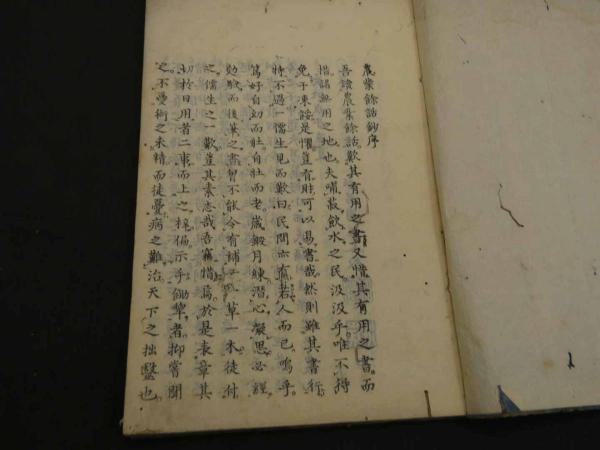 農業餘話鈔序
吾讀農業餘話歎其有用之書又惜其有用之書而
措諸無用之地也夫啜菽飲水之民汲汲乎唯不特
免于凍餒是懼豈有財可以易書哉然則雖其書行
特不過一儒生見而歎曰民間亦有若人而已嗚乎
篤好自幼而壯自壯而老歲鍛月練潜心凝思必經
効驗而後筆之書曾不能今有補一草一木徒付
之儒生之一歎豈其素志哉吾竊惜焉於是表章其
切於日用者二事而上之梓偏示乎鋤犂者抑嘗聞
之不憂術之未精而徒憂病之難治天下之拙醫也